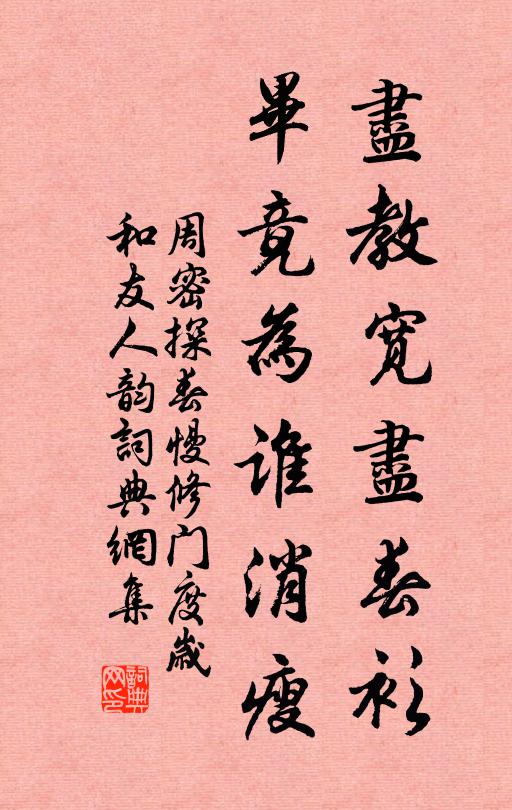 盡教寬盡春衫
畢竟為誰消瘦
周密探春慢修門度歲
和友人韵詞典網集
詞典網印